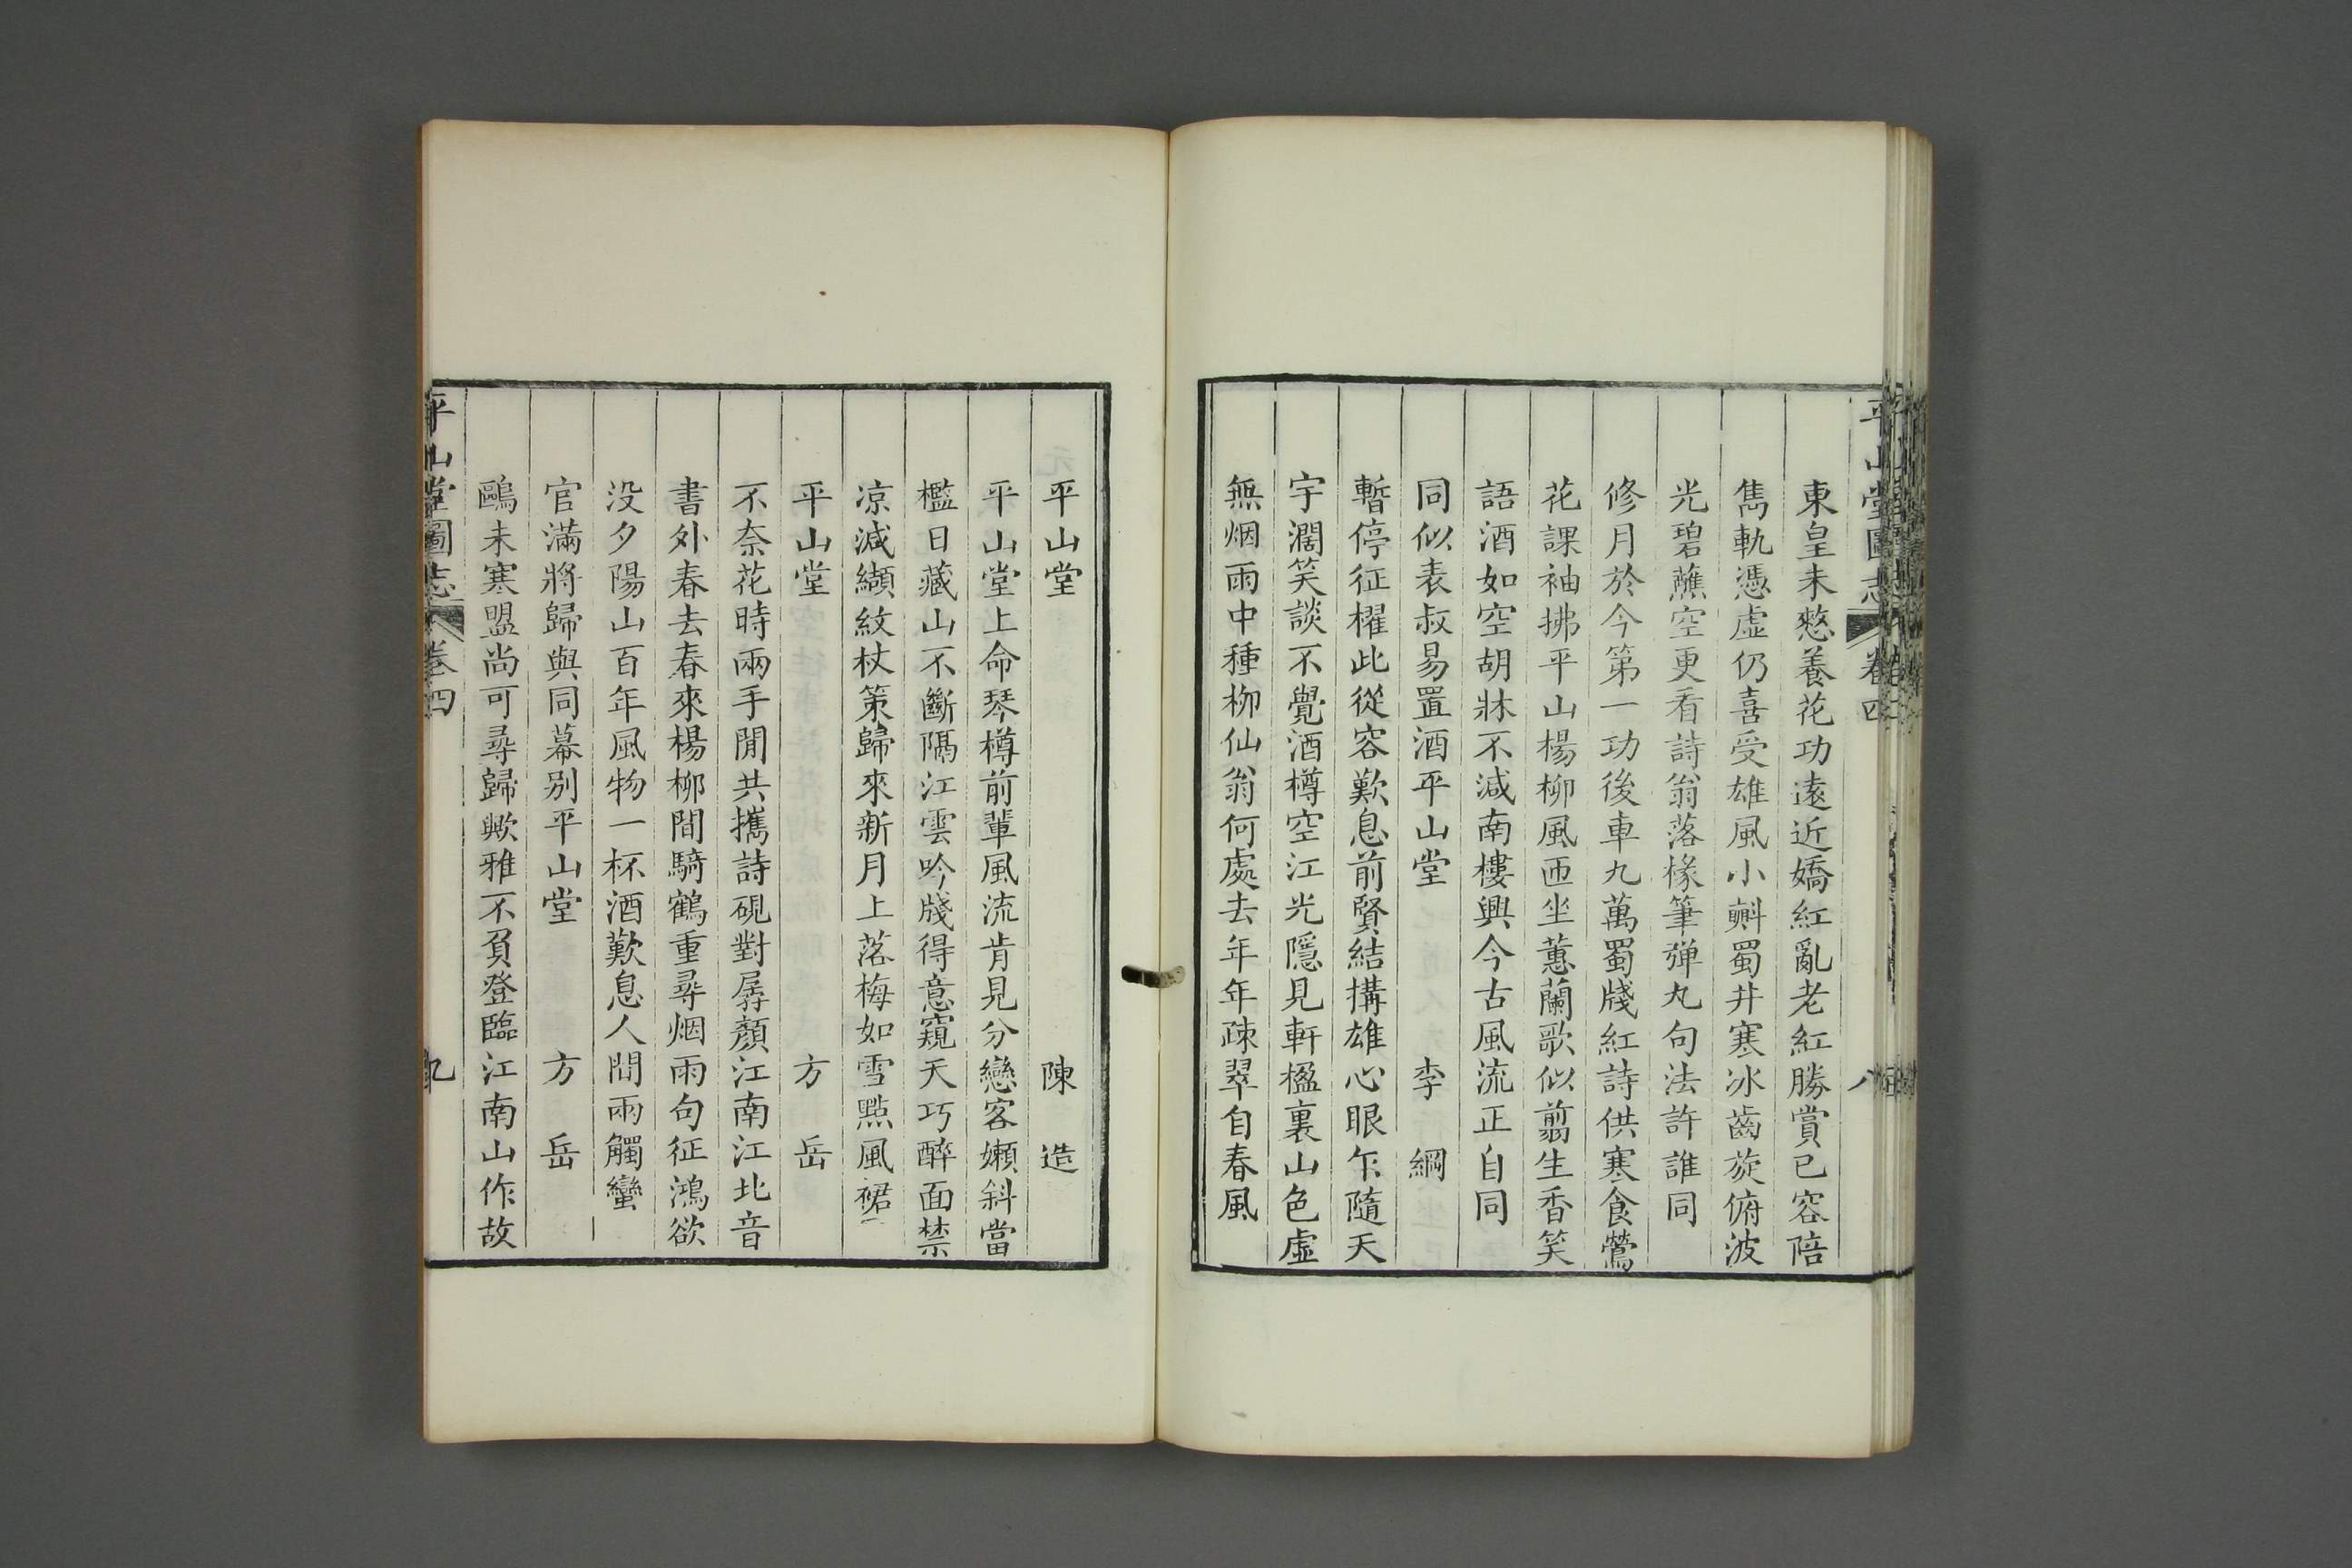 平山堂圖志 卷四 八
東皇未愁養花功遠近嬌紅亂老紅勝賞已容陪
雋軌憑虛仍喜受雄風小㪺蜀井寒冰齒旋俯波
光碧蘸空更看詩翁落椽筆彈丸句法許誰同
修月於今第一功後車九萬蜀牋紅詩供寒食鶯
花課袖拂平山楊柳風匝坐蕙蘭歌似翦生香笑
語酒如空胡牀不減南樓興今古風流正自同
同似表叔易置酒平山堂 李綱
暫停征櫂此從容歎息前賢結搆雄心眼乍隨天
宇濶笑談不覺酒樽空江光隱見軒楹裏山色虛
無烟雨中種栁仙翁何處去年年疎翠自春風
平山堂 陳造
平山堂上命琴樽前輩風流肯見分戀客嬾斜當
檻日藏山不斷隔江雲吟牋得意窺天巧醉面禁
凉減纈紋杖策歸來新月上落梅如雪點風裙
平山堂 方岳
不奈花時兩手閒共攜詩硯對孱顏江南江北音
書外春去春來楊柳間騎鶴重尋烟雨句征鴻欲
没夕陽山百年風物一杯酒歎息人間兩觸蠻
官滿將歸與同幕别平山堂 方岳
鷗未寒盟尚可尋歸歟雅不負登臨江南山作故
平山堂圖志 卷四 九